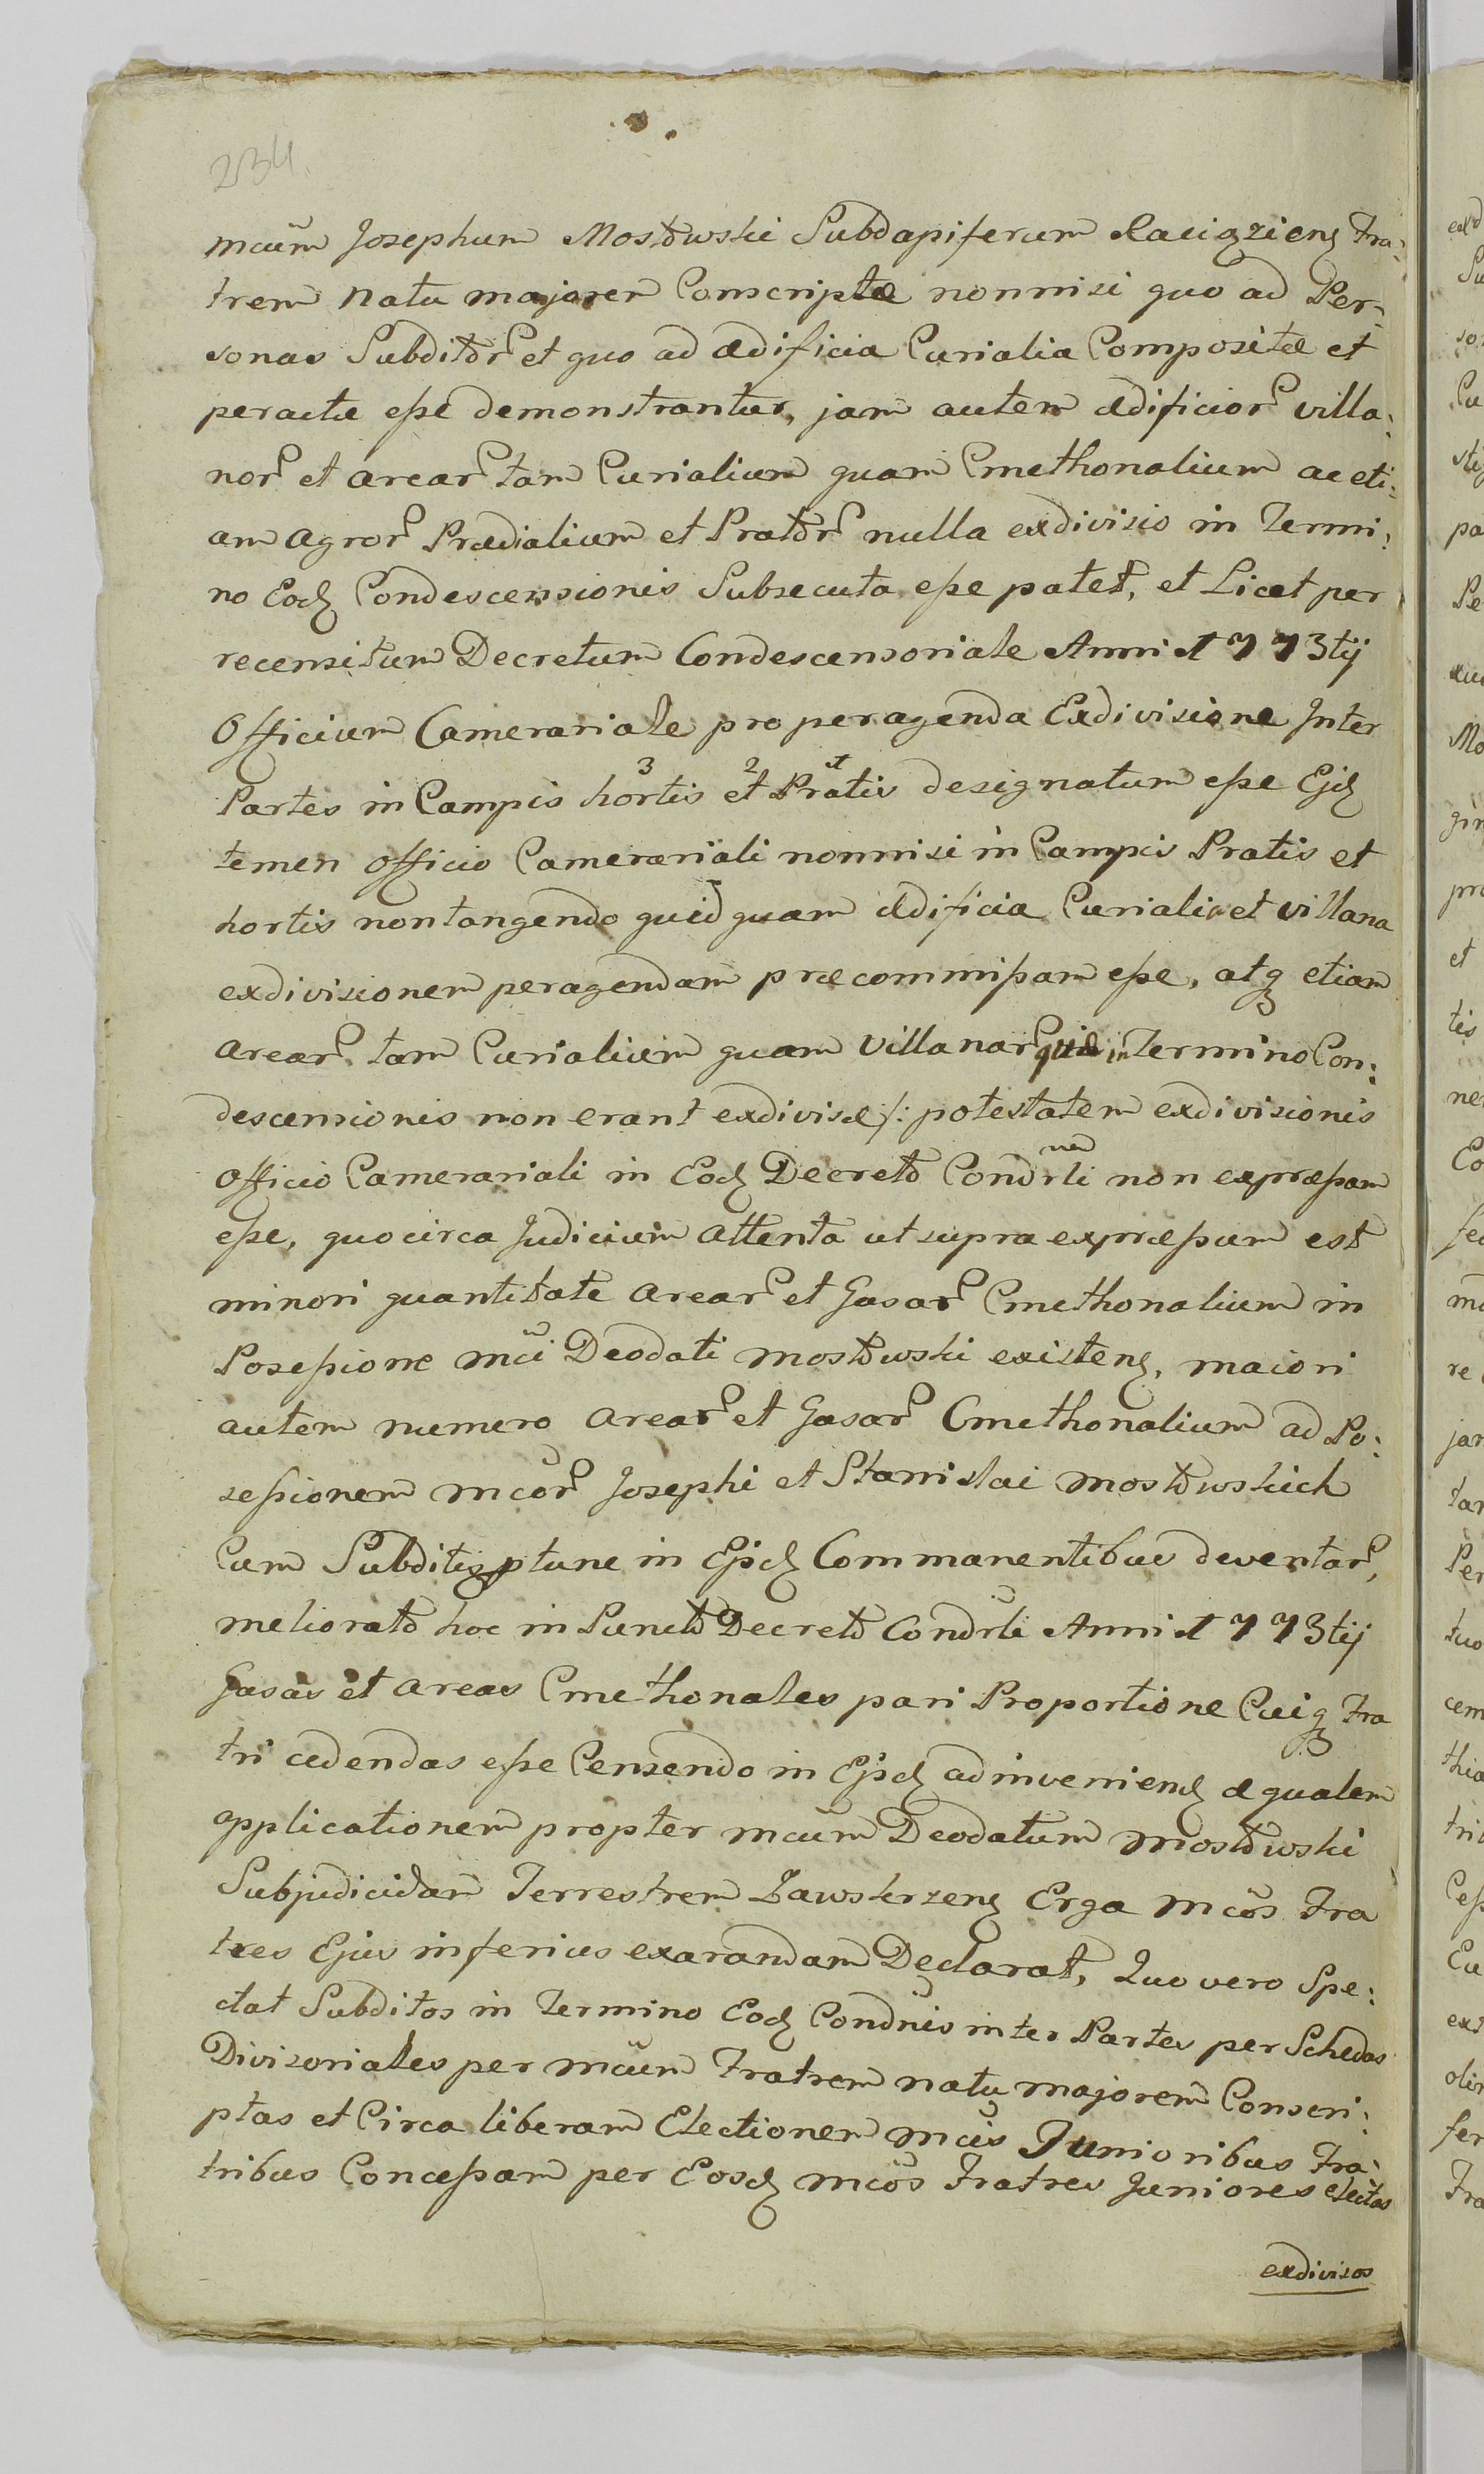 234.
mcũm Josephum Mostowski Subdapiferum Raciązieng Fra:
trem natu majorem Conscriptæ nonnisi quo ad Per:
sonas Subditor et quo ad ædificia Curialia Compositæ et
peractæ esse demonstrantur, jam autem ædificior villa:
nor et arear tam Curialium quam Cmethonalium ac eti:
am agror Prædialium et Prator nulla exdivisio in Termi:
no Eod Condescensionis Subsecuta esse patet, et Licet per
recensitum Decretum Condescensoriale Anni 1773tij
Officium Camerariale pro peragenda Exdivisione Inter
3 2 1
Partes in Campis hortis et Pratis designatum esse Ejd
temen officio Camerariali nonnisi in Campis Pratis et
hortis non tangendo quidquam ædificia Curialia et villana
exdivisionem peragendam præcommissam esse, atq etiam
arear tam Curialium quam villanar quæ in Termino Con:
descensionis non erant exdivisæ /: potestatem exdivisionis
officio Camerariali in Eod Decreto Condrli non expræssam
esse, quocirca Judicium attenta ut supra expræssum est
minori quantitate arear et Gasar Cmethonalium in
Posessione mci Deodati mostowski existeng, maiori
autem numero arear et Gasar Cmethonalium ad Po:
sessionem mcor Josephi et Stanislai mostowskich
Cum Subditis ptunc in Ejsd Commanentibus deventar,
meliorato hoc in Puncto Decreto Condrli Anni 1773tij
Gasas et areas Cmethonales pari Proportione Cuiq Fra
tri cedendas esse Censendo in Ejsd adinveniend æqualem
applicationem propter mcum Deodatum mostowski
Subjudicidam Terrestrem Zawskrzeng Erga mcos Fra
tres Ejus inferius exarandam Declarat, Quo vero Spe:
ctat Subditos in Termino Eod Condnis inter Partes per Schedas
Divisoriales per mcum Fratrem natu majorem Conscri:
ptas et Circa liberam Electionem mcis Junioribus Fra:
tribus Concessam per Eosd mcos Fratres Juniores electas
exdivisos